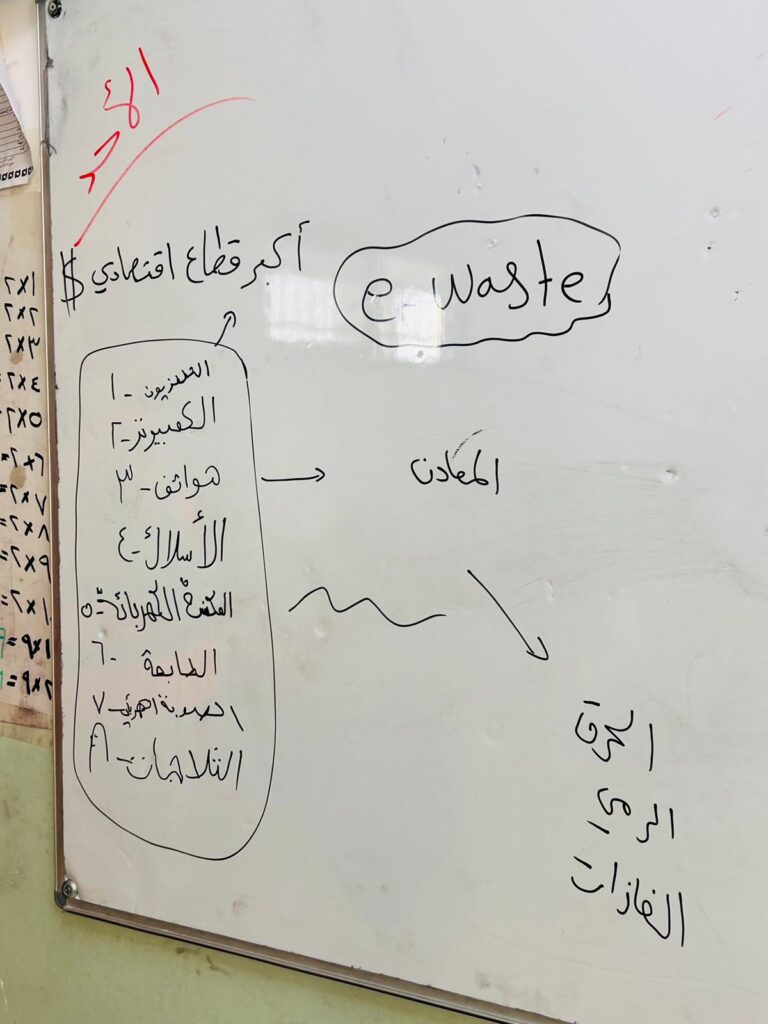 الأحد
أكبر قطاع اقتصادي $
e-waste
١- التلفزيون
٢- الكمبيوتر
٣- هواتف
٤- الأسلاك
٥- المكنسة الكهربائية
٦- الطابعة
٧-
٨- الثلاجات
المعادن
الحرق
الرمي
الغازات
١×٢
٢×٢
٣×٢
٤×٢
٥×٢
٦×٢=
٧×٢=
٨×٢=
٩×٢=
١٠×٢=
١×٩=
٢×٩=